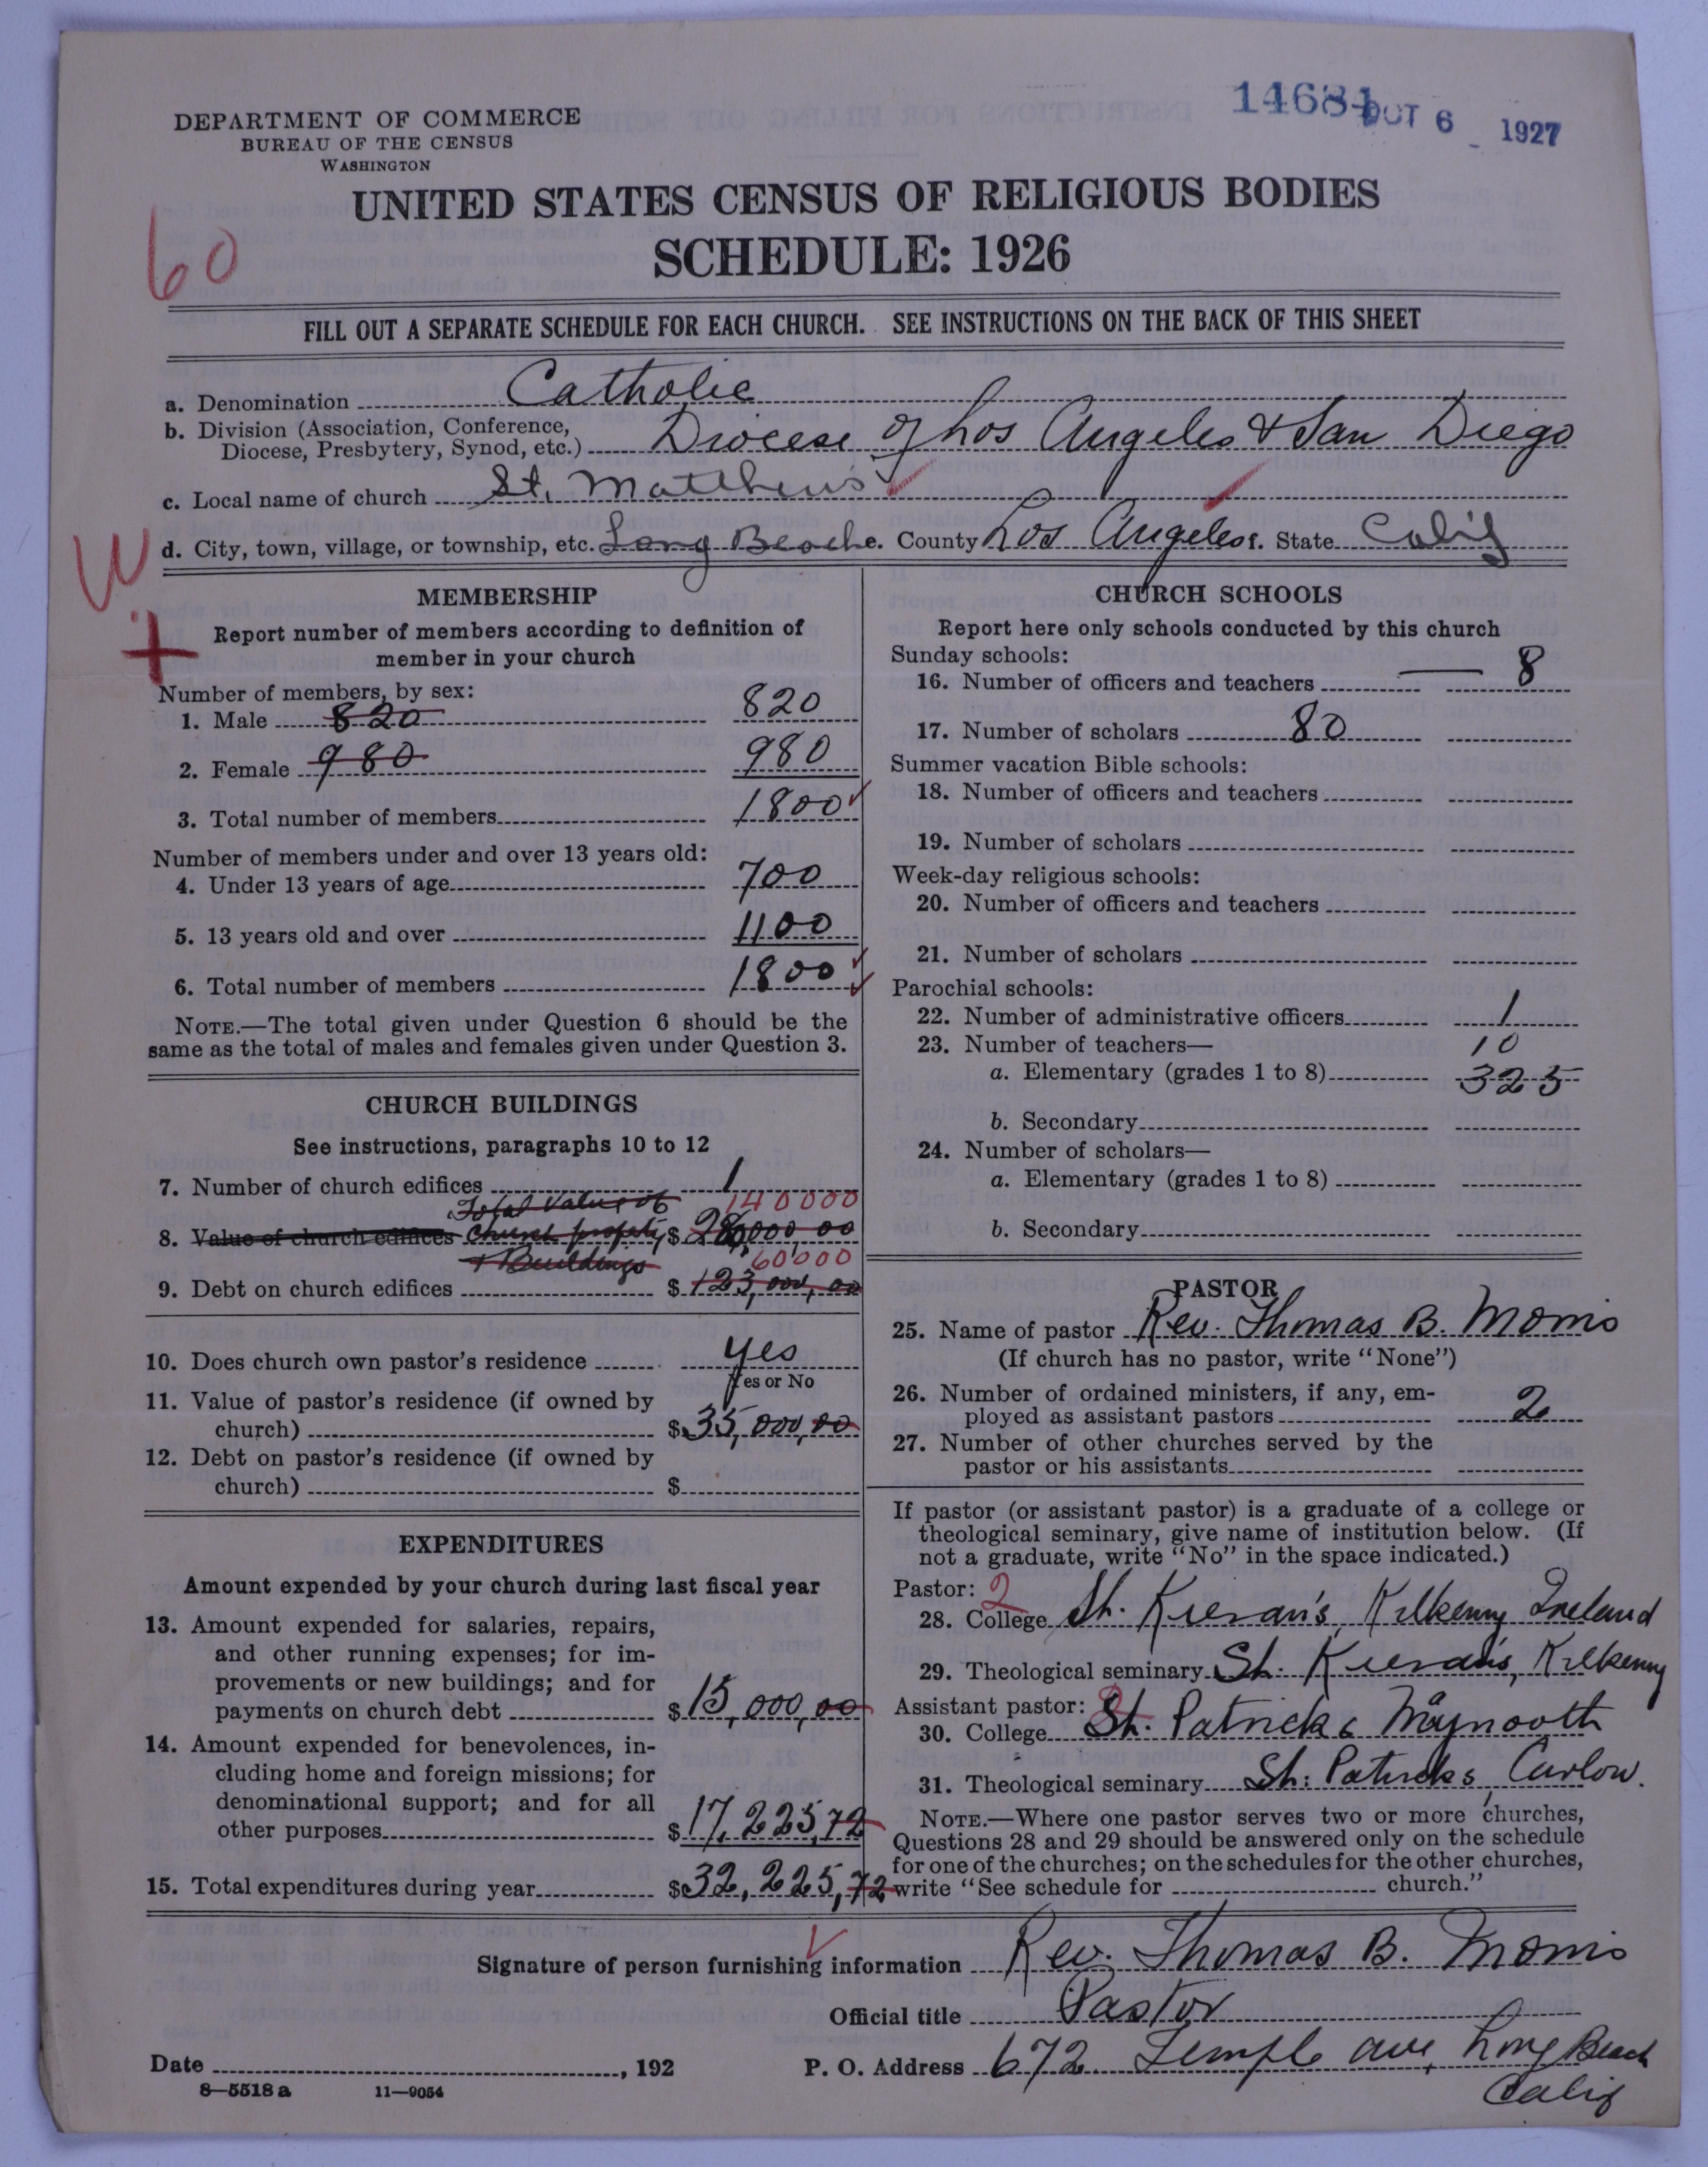 14684 OCT 6 1927
DEPARTMENT OF COMMERCE
BUREAU OF THE CENSUS
WASHINGTON
UNITED STATES CENSUS OF RELIGIOUS BODIES
SCHEDULE: 1926
60
FILL OUT A SEPARATE SCHEDULE FOR EACH CHURCH. SEE INSTRUCTIONS ON THE BACK OF THIS SHEET
a. Denomination Catholic
b. Division (Association, Conference,
Diocese, Presbytery, Synod, etc.) Diocese of Los Angeles & San Diego
c. Local name of church St. Matthew's
W
d. City, town, village, or township, etc. Long Beach e. County Los Angeles f. State Calif
+
MEMBERSHIP
Report number of members according to definition of
member in your church
Number of members, by sex:
1. Male 820 820
2. Female 980 980
3. Total number of members 1800
Number of members under and over 13 years old:
4. Under 13 years of age 700
5. 13 years old and over 1100
6. Total number of members 1800
NOTE.—The total given under Question 6 should be the
same as the total of males and females given under Question 3.
CHURCH BUILDINGS
See instructions, paragraphs 10 to 12
7. Number of church edifices 1
Total Value of 140000
8. Value of church edifices Church property $
& Buildings 60000
9. Debt on church edifices $ 123,000,00
10. Does church own pastor's residence yes
Yes or No
11. Value of pastor's residence (if owned by
church) $35,000,00
12. Debt on pastor's residence (if owned by
church) $
EXPENDITURES
Amount expended by your church during last fiscal year
13. Amount expended for salaries, repairs,
and other running expenses; for im-
provements or new buildings; and for
payments on church debt $15,000,00
14. Amount expended for benevolences, in-
cluding home and foreign missions; for
denominational support; and for all
other purposes $17,225,72
15. Total expenditures during year $32,225,72
CHURCH SCHOOLS
Report here only schools conducted by this church
Sunday schools:
16. Number of officers and teachers 8
17. Number of scholars 80
Summer vacation Bible schools:
18. Number of officers and teachers
19. Number of scholars
Week-day religious schools:
20. Number of officers and teachers
21. Number of scholars
Parochial schools:
22. Number of administrative officers 1
23. Number of teachers— 10
a. Elementary (grades 1 to 8) 325
b. Secondary
24. Number of scholars—
a. Elementary (grades 1 to 8)
b. Secondary
PASTOR
25. Name of pastor Rev. Thomas B. Morris
(If church has no pastor, write "None")
26. Number of ordained ministers, if any, em-
ployed as assistant pastors 2
27. Number of other churches served by the
pastor or his assistants
If pastor (or assistant pastor) is a graduate of a college or
theological seminary, give name of institution below. (If
not a graduate, write "No" in the space indicated.)
Pastor: 2
28. College St. Kieran's, Kilkenny Ireland
29. Theological seminary St. Kieran's, Kilkenny
Assistant pastor:
30. College St. Patricks Maynooth
31. Theological seminary St. Patricks, Carlow.
NOTE.—Where one pastor serves two or more churches,
Questions 28 and 29 should be answered only on the schedule
for one of the churches; on the schedules for the other churches,
write "See schedule for church."
Signature of person furnishing information Rev. Thomas B. Morris
Official title Pastor
Date , 192 P. O. Address 672 Temple ave, Long Beach
Calif
8—5518 a 11—9054